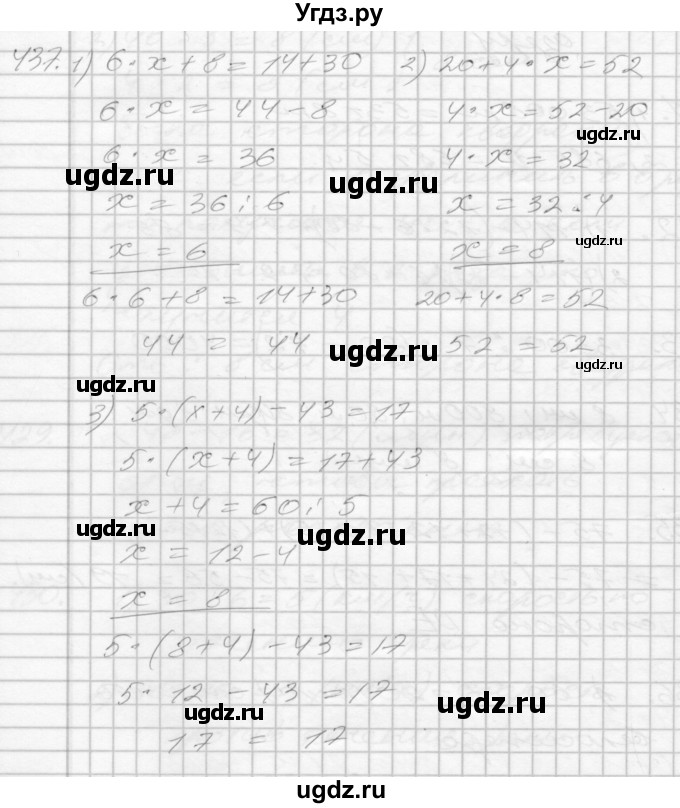 Угдз.ру
437. 1) 6 · x + 8 = 14 + 30
6 · x = 44 - 8
6 · x = 36
x = 36 : 6
x = 6
6 · 6 + 8 = 14 + 30
44 = 44
2) 20 + 4 · x = 52
4 · x = 52 - 20
4 · x = 32
x = 32 : 4
x = 8
20 + 4 · 8 = 52
52 = 52
3) 5 · (x + 4) - 43 = 17
5 · (x + 4) = 17 + 43
x + 4 = 60 : 5
x = 12 - 4
x = 8
5 · (8 + 4) - 43 = 17
5 · 12 - 43 = 17
17 = 17
ugdz.ru
ugdz.ru
ugdz.ru
ugdz.ru
ugdz.ru
ugdz.ru
ugdz.ru
ugdz.ru
ugdz.ru
ugdz.ru
ugdz.ru
ugdz.ru